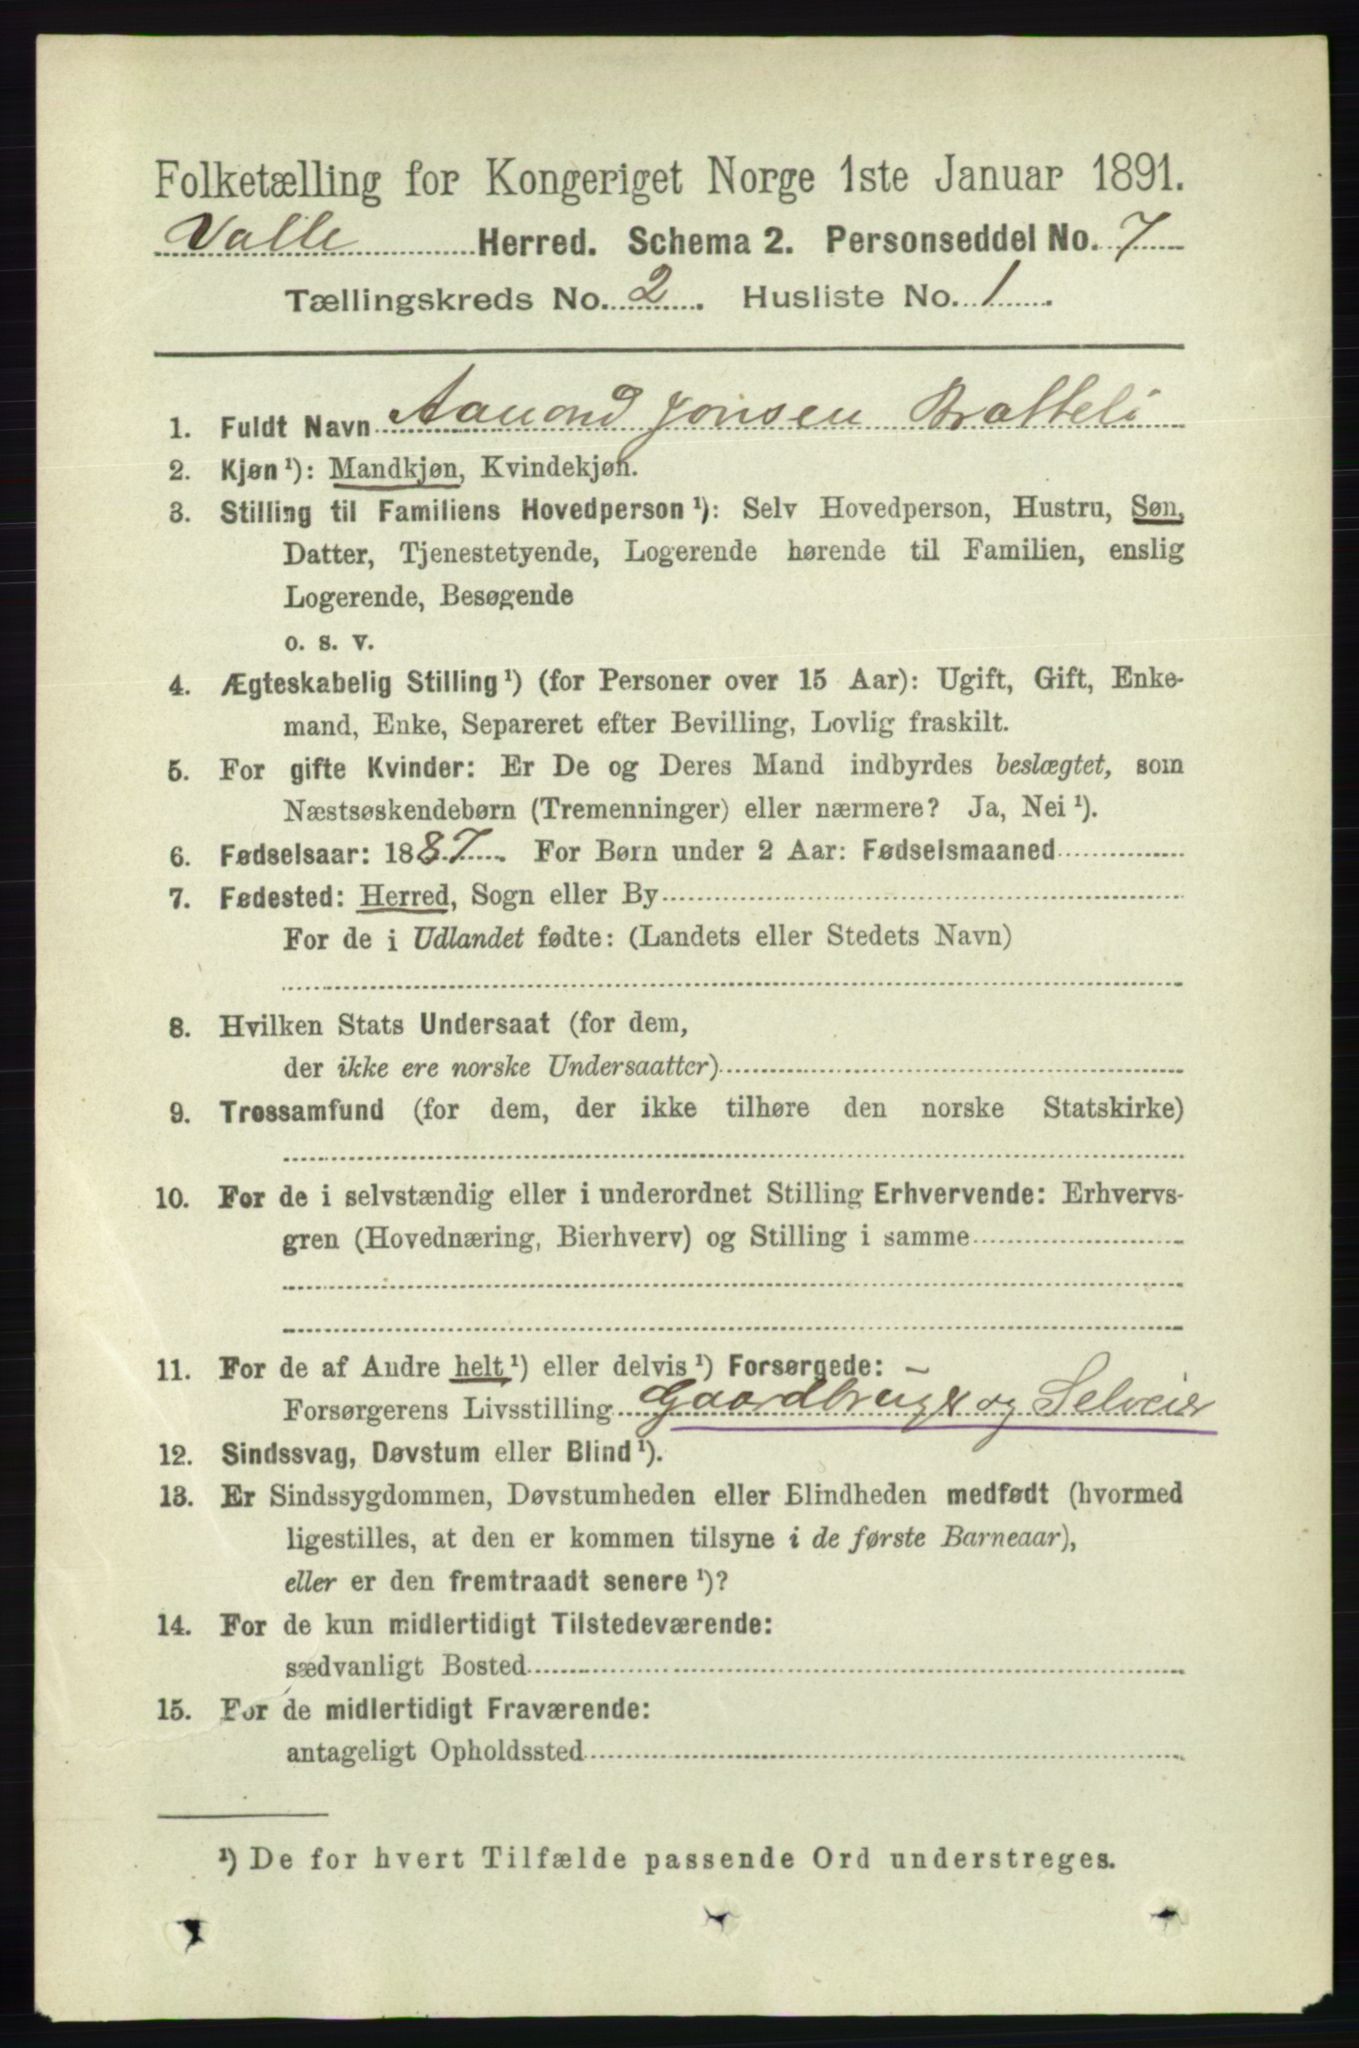 Folketælling for Kongeriget Norge 1ste Januar 1891.
Valle Herred. Schema 2. Personseddel No. 7
Tællingskreds No. 2. Husliste No. 1.
1. Fuldt Navn Aamond Jonsen Bratteli
2. Kjøn ¹): Mandkjøn, Kvindekjøn.
3. Stilling til Familiens Hovedperson ¹): Selv Hovedperson, Hustru, Søn,
Datter, Tjenestetyende, Logerende hørende til Familien, enslig
Logerende, Besøgende
o. s. v.
4. Ægteskabelig Stilling ¹) (for Personer over 15 Aar): Ugift, Gift, Enke-
mand, Enke, Separeret efter Bevilling, Lovlig fraskilt.
5. For gifte Kvinder: Er De og Deres Mand indbyrdes beslægtet, som
Næstsøskendebørn (Tremenninger) eller nærmere? Ja, Nei ¹).
6. Fødselsaar: 1887. For Børn under 2 Aar: Fødselsmaaned
7. Fødested: Herred, Sogn eller By
For de i Udlandet fødte: (Landets eller Stedets Navn)
8. Hvilken Stats Undersaat (for dem,
der ikke ere norske Undersaatter)
9. Trossamfund (for dem, der ikke tilhøre den norske Statskirke)
10. For de i selvstændig eller i underordnet Stilling Erhvervende: Erhvervs-
gren (Hovednæring, Bierhverv) og Stilling i samme
11. For de af Andre helt ¹) eller delvis ¹) Forsørgede: –
Forsørgerens Livsstilling Gaardbruger og Selveier
12. Sindssvag, Døvstum eller Blind ¹).
13. Er Sindssygdommen, Døvstumheden eller Blindheden medfødt (hvormed
ligestilles, at den er kommen tilsyne i de første Barneaar),
eller er den fremtraadt senere ¹)?
14. For de kun midlertidigt Tilstedeværende:
sædvanligt Bosted
15. For de midlertidigt Fraværende:
antageligt Opholdssted
¹) De for hvert Tilfælde passende Ord understreges.